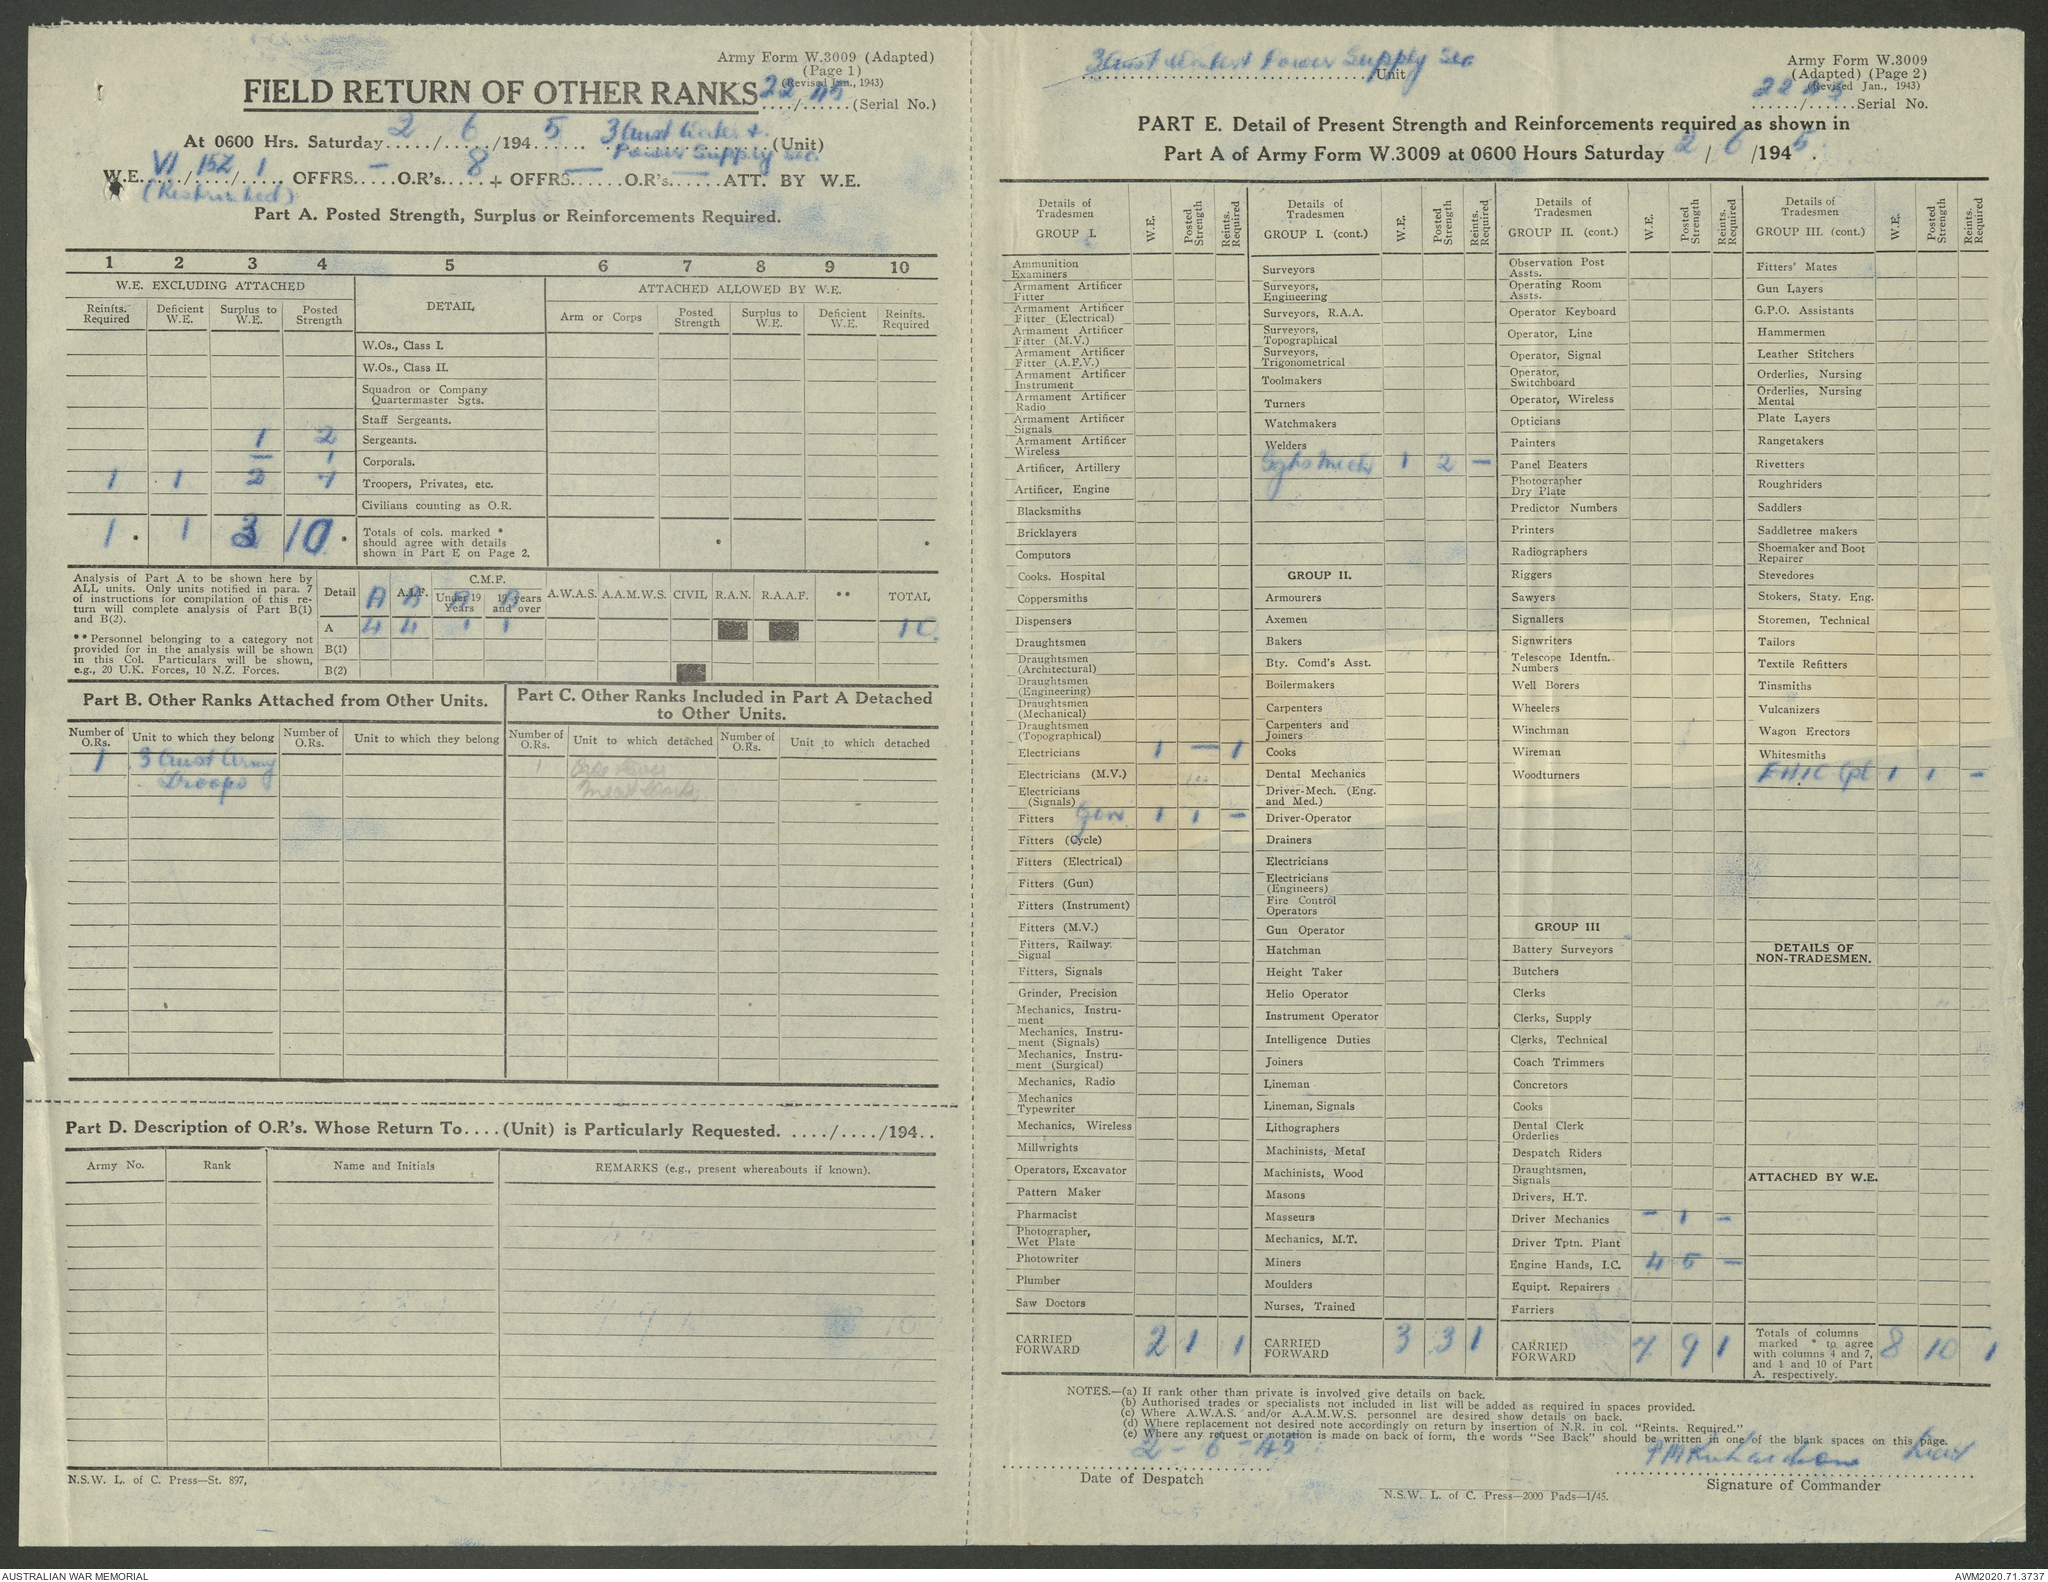 Army Form W.3009 (Adapted)
(Page 1)
(Revised Jan., 1943)
FIELD RETURN OF OTHER RANKS 22/45 (Serial No.)
At 0600 Hrs. Saturday 2/6/1945 3 Aust Water & (Unit)
Power Supply Sec.
W.E. VI/15Z/1 OFFRS. — O.R's. 8 + OFFRS. — O.R's. — ATT. BY W.E.
(Restricted)
Part A. Posted Strength, Surplus or Reinforcements Required.
1 2 3 4 5 6 7 8 9 10
W.E. EXCLUDING ATTACHED DETAIL ATTACHED ALLOWED BY W.E.
Reinfts. Required Deficient W.E. Surplus to W.E. Posted Strength Arm or Corps Posted Strength Surplus to W.E. Deficient W.E. Reinfts. Required
W.Os., Class I.
W.Os., Class II.
Squadron or Company
Quartermaster Sgts.
Staff Sergeants.
1 2 Sergeants.
— 1 Corporals.
1 1 2 7 Troopers, Privates, etc.
Civilians counting as O.R.
1 * 1 3 10 * Totals of cols. marked *
should agree with details
shown in Part E on Page 2.
Analysis of Part A to be shown here by
ALL units. Only units notified in para. 7
of instructions for compilation of this re-
turn will complete analysis of Part B(1)
and B(2).
** Personnel belonging to a category not
provided for in the analysis will be shown
in this Col. Particulars will be shown,
e.g., 20 U.K. Forces, 10 N.Z. Forces.
Detail A.I.F. C.M.F. Under 19 Years 19 years and over A.W.A.S. A.A.M.W.S. CIVIL R.A.N. R.A.A.F. ** TOTAL
A 4 4 1 1
B(1)
B(2)
Part B. Other Ranks Attached from Other Units.
Number of O.Rs. Unit to which they belong Number of O.Rs. Unit to which they belong
1 3 Aust Army
Troops
Part C. Other Ranks Included in Part A Detached
to Other Units.
Number of O.Rs. Unit to which detached Number of O.Rs. Unit to which detached
1
Part D. Description of O.R's. Whose Return To....(Unit) is Particularly Requested. ..../..../194..
Army No. Rank Name and Initials REMARKS (e.g., present whereabouts if known).
N.S.W. L. of C. Press—St. 897,
3 Aust Water & Power Supply Sec
Unit
Army Form W.3009
(Adapted) (Page 2)
(Revised Jan., 1943)
22/45 Serial No.
PART E. Detail of Present Strength and Reinforcements required as shown in
Part A of Army Form W.3009 at 0600 Hours Saturday 2/6/1945.
Details of Tradesmen GROUP I. W.E. Posted Strength Reints. Required
Ammunition Examiners
Armament Artificer Fitter
Armament Artificer Fitter (Electrical)
Armament Artificer Fitter (M.V.)
Armament Artificer Fitter (A.F.V.)
Armament Artificer Instrument
Armament Artificer Radio
Armament Artificer Signals
Armament Artificer Wireless
Artificer, Artillery
Artificer, Engine
Blacksmiths
Bricklayers
Computors
Cooks. Hospital
Coppersmiths
Dispensers
Draughtsmen
Draughtsmen (Architectural)
Draughtsmen (Engineering)
Draughtsmen (Mechanical)
Draughtsmen (Topographical)
Electricians 1 — 1
Electricians (M.V.)
Electricians (Signals)
Fitters Gen 1 1 —
Fitters (Cycle)
Fitters (Electrical)
Fitters (Gun)
Fitters (Instrument)
Fitters (M.V.)
Fitters, Railway. Signal
Fitters, Signals
Grinder, Precision
Mechanics, Instru-ment
Mechanics, Instru-ment (Signals)
Mechanics, Instru-ment (Surgical)
Mechanics, Radio
Mechanics Typewriter
Mechanics, Wireless
Millwrights
Operators, Excavator
Pattern Maker
Pharmacist
Photographer, Wet Plate
Photowriter
Plumber
Saw Doctors
CARRIED FORWARD 2 1 1
Details of Tradesmen GROUP I. (cont.) W.E. Posted Strength Reints. Required
Surveyors
Surveyors, Engineering
Surveyors, R.A.A.
Surveyors, Topographical
Surveyors, Trigonometrical
Toolmakers
Turners
Watchmakers
Welders
1 2 —
GROUP II.
Armourers
Axemen
Bakers
Bty. Comd's Asst.
Boilermakers
Carpenters
Carpenters and Joiners
Cooks
Dental Mechanics
Driver-Mech. (Eng. and Med.)
Driver-Operator
Drainers
Electricians
Electricians (Engineers)
Fire Control Operators
Gun Operator
Hatchman
Height Taker
Helio Operator
Instrument Operator
Intelligence Duties
Joiners
Lineman
Lineman, Signals
Lithographers
Machinists, Metal
Machinists, Wood
Masons
Masseurs
Mechanics, M.T.
Miners
Moulders
Nurses, Trained
CARRIED FORWARD 3 3 1
Details of Tradesmen GROUP II. (cont.) W.E. Posted Strength Reints. Required
Observation Post Assts.
Operating Room Assts.
Operator Keyboard
Operator, Line
Operator, Signal
Operator, Switchboard
Operator, Wireless
Opticians
Painters
Panel Beaters
Photographer Dry Plate
Predictor Numbers
Printers
Radiographers
Riggers
Sawyers
Signallers
Signwriters
Telescope Identfn. Numbers
Well Borers
Wheelers
Winchman
Wireman
Woodturners
GROUP III
Battery Surveyors
Butchers
Clerks
Clerks, Supply
Clerks, Technical
Coach Trimmers
Concretors
Cooks
Dental Clerk Orderlies
Despatch Riders
Draughtsmen, Signals
Drivers, H.T.
Driver Mechanics — 1 —
Driver Tptn. Plant
Engine Hands, I.C. 4 5 —
Equipt. Repairers
Farriers
CARRIED FORWARD 7 9 1
Details of Tradesmen GROUP III. (cont.) W.E. Posted Strength Reints. Required
Fitters' Mates
Gun Layers
G.P.O. Assistants
Hammermen
Leather Stitchers
Orderlies, Nursing
Orderlies, Nursing Mental
Plate Layers
Rangetakers
Rivetters
Roughriders
Saddlers
Saddletree makers
Shoemaker and Boot Repairer
Stevedores
Stokers, Staty. Eng.
Storemen, Technical
Tailors
Textile Refitters
Tinsmiths
Vulcanizers
Wagon Erectors
Whitesmiths
EHIC Cpl 1 1 —
DETAILS OF
NON-TRADESMEN.
ATTACHED BY W.E.
Totals of columns
marked * to agree
with columns 4 and 7,
and 1 and 10 of Part
A. respectively. 8 10 1
NOTES.—(a) If rank other than private is involved give details on back.
(b) Authorised trades or specialists not included in list will be added as required in spaces provided.
(c) Where A.W.A.S. and/or A.A.M.W.S. personnel are desired show details on back.
(d) Where replacement not desired note accordingly on return by insertion of N.R. in col. "Reints. Required."
(e) Where any request or notation is made on back of form, the words "See Back" should be written in one of the blank spaces on this page.
2-6-45
Date of Despatch
PM Richardson Lieut
Signature of Commander
N.S.W. L. of C. Press—2000 Pads—1/45.
AUSTRALIAN WAR MEMORIAL
AWM2020.71.3737